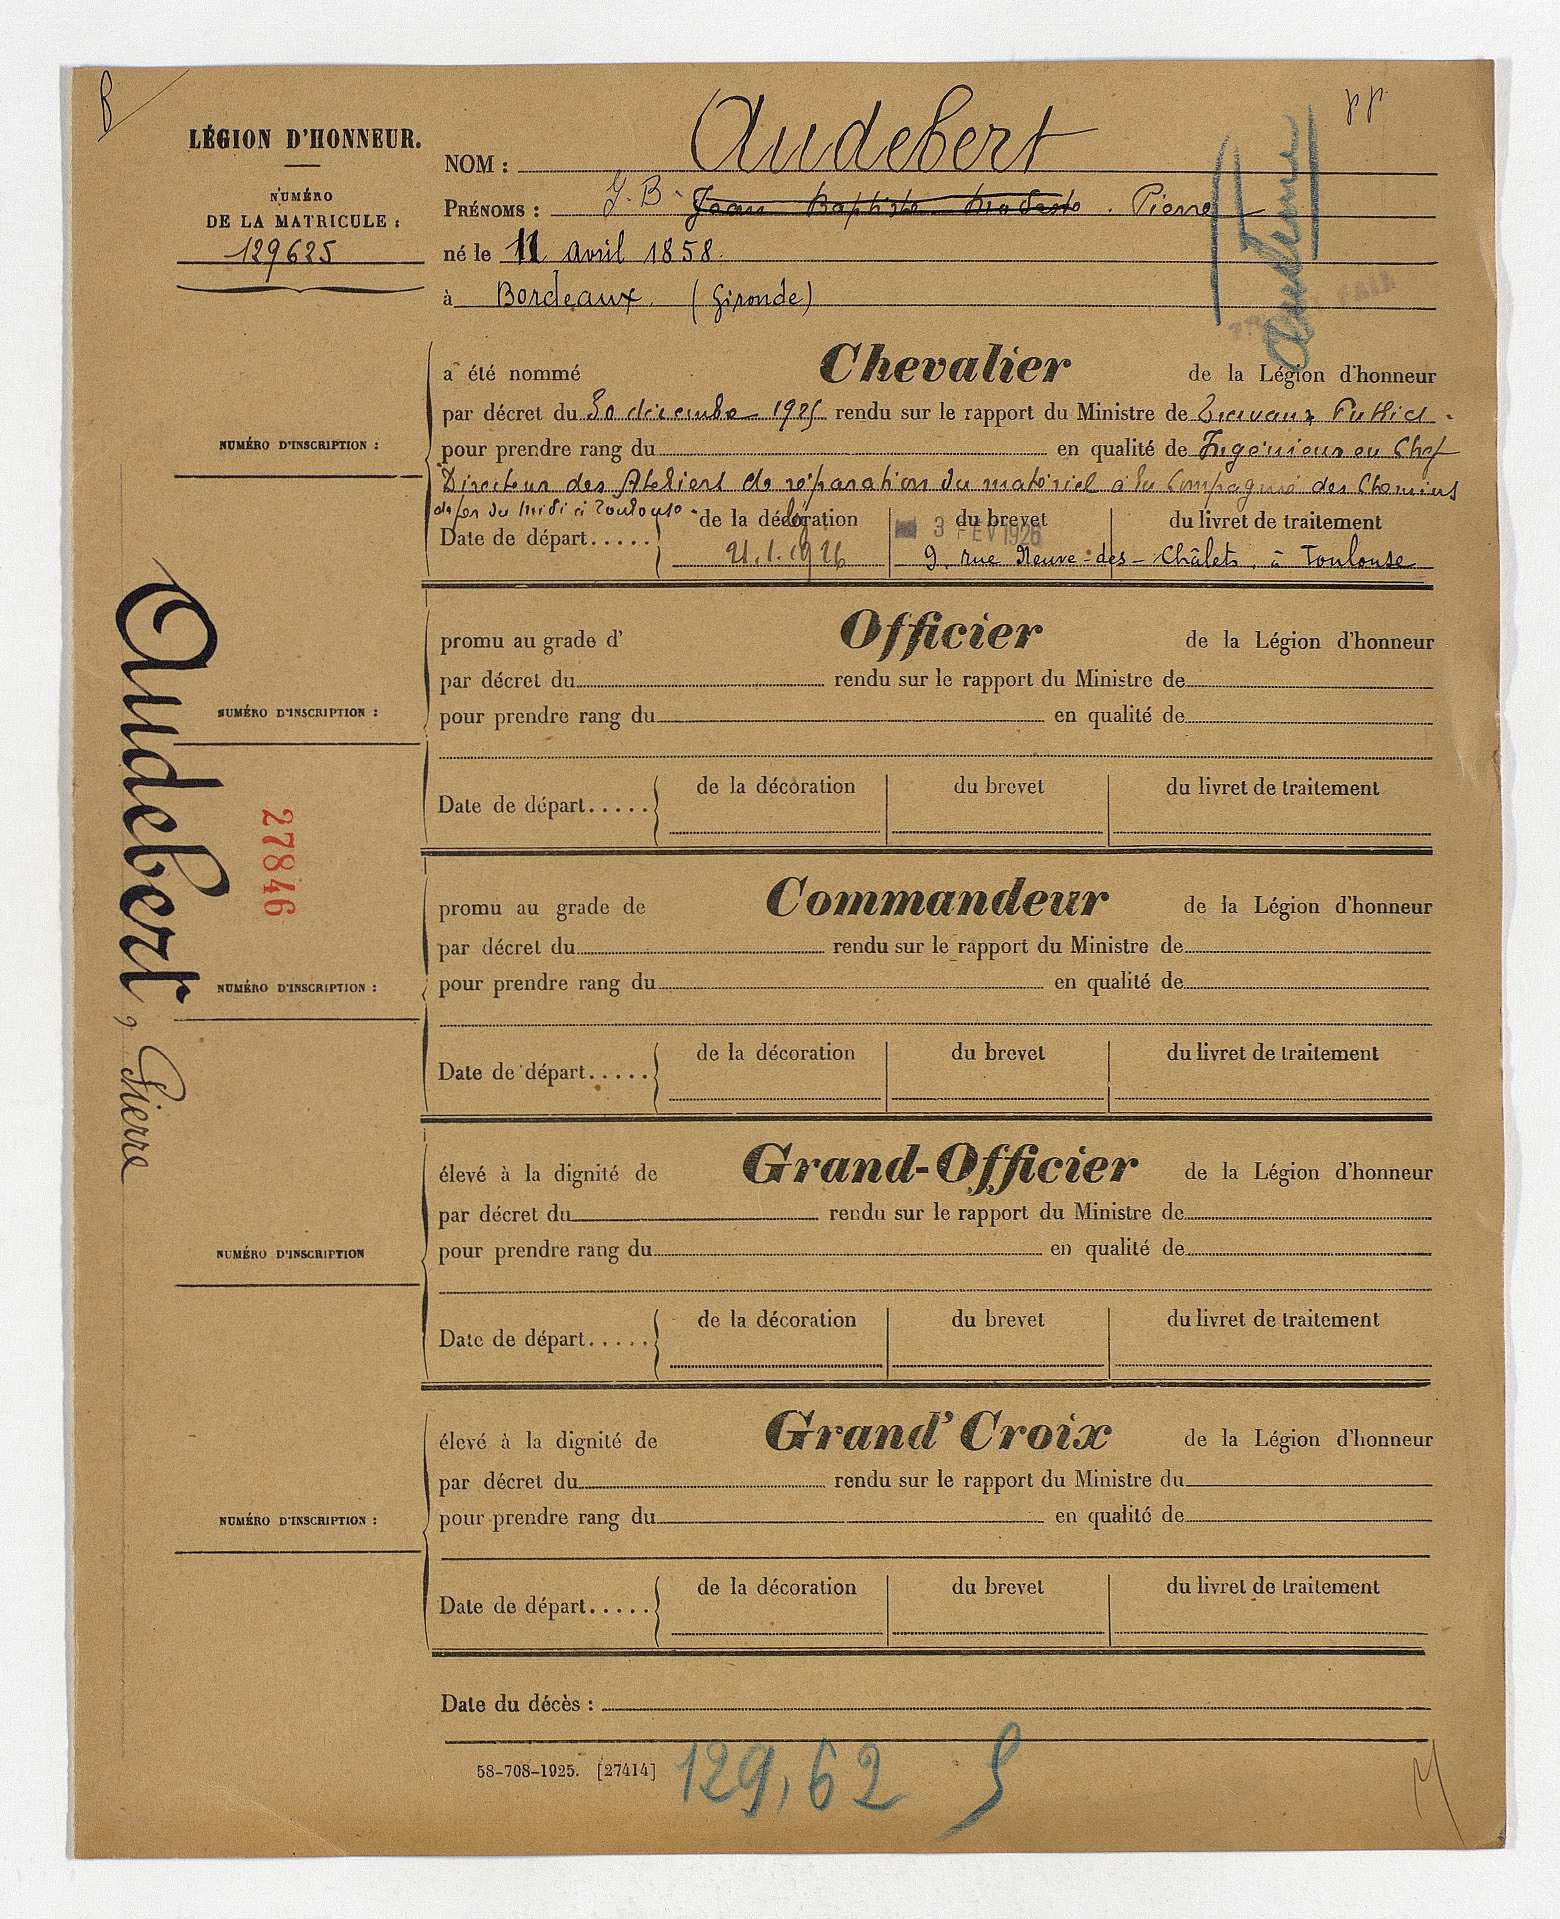 LÉGION D'HONNEUR.
NUMÉRO
DE LA MATRICULE :
129625
NOM : Audebert
PRÉNOMS : J. B. Jean Baptiste Modeste. Pierre
né le 11 avril 1858.
à Bordeaux. (Gironde)
Audebert
NUMÉRO D'INSCRIPTION :
a été nommé Chevalier de la Légion d'honneur
par décret du 30 décembre 1925 rendu sur le rapport du Ministre de Travaux Publics.
pour prendre rang du en qualité de Ingénieur en Chef
Directeur des Ateliers de réparation du matériel à la Compagnie des Chemins
de fer du Midi à Toulouse.
Date de départ..... de la décoration du brevet du livret de traitement
21.1.1926 3 FEV 1926 9, rue Neuve-des-Châlets, à Toulouse
NUMÉRO D'INSCRIPTION :
promu au grade d' Officier de la Légion d'honneur
par décret du rendu sur le rapport du Ministre de
pour prendre rang du en qualité de
Date de départ..... de la décoration du brevet du livret de traitement
Audebert, Pierre
27846
NUMÉRO D'INSCRIPTION :
promu au grade de Commandeur de la Légion d'honneur
par décret du rendu sur le rapport du Ministre de
pour prendre rang du en qualité de
Date de départ..... de la décoration du brevet du livret de traitement
NUMÉRO D'INSCRIPTION
élevé à la dignité de Grand-Officier de la Légion d'honneur
par décret du rendu sur le rapport du Ministre de
pour prendre rang du en qualité de
Date de départ..... de la décoration du brevet du livret de traitement
NUMÉRO D'INSCRIPTION :
élevé à la dignité de Grand'Croix de la Légion d'honneur
par décret du rendu sur le rapport du Ministre du
pour prendre rang du en qualité de
Date de départ..... de la décoration du brevet du livret de traitement
Date du décès :
58-708-1925. [27414]
129,625